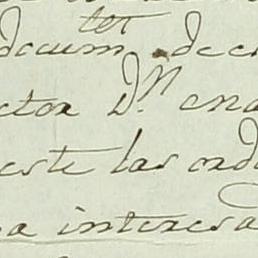 docum.tos de c
ctor D.n ena
este las ord
a interesa